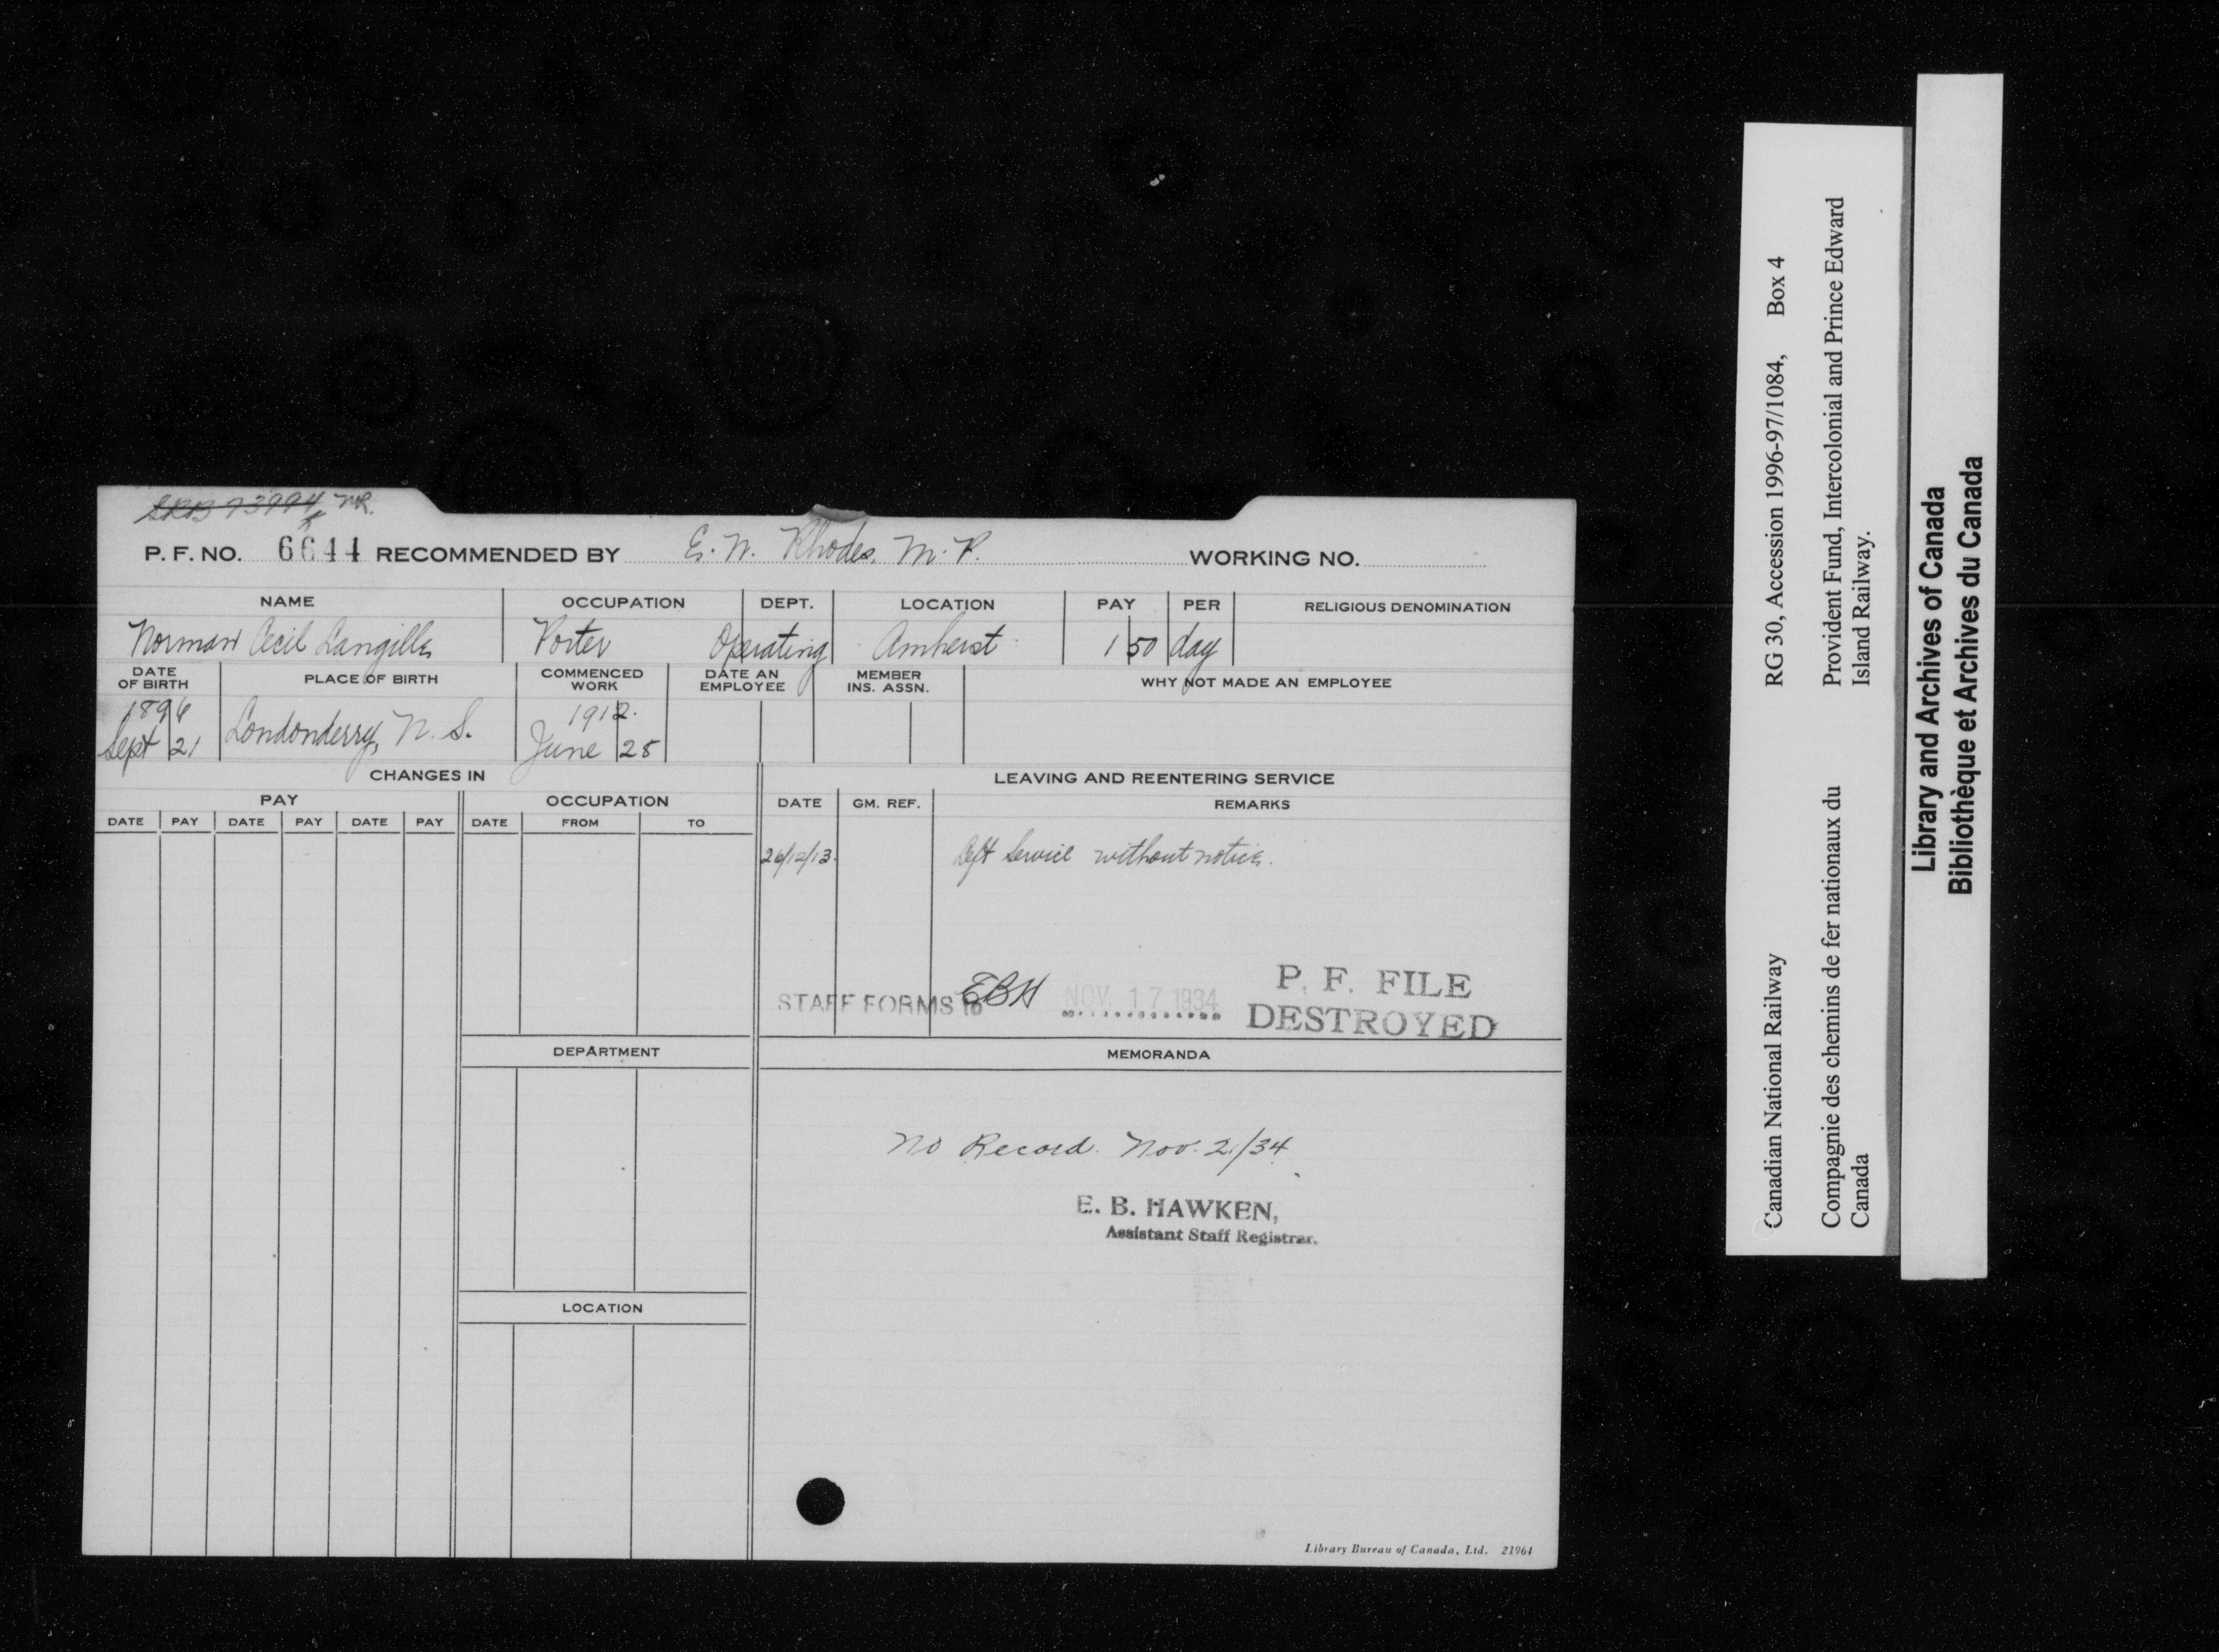 SRB 73994 NR.
P. F. NO. 6644 RECOMMENDED BY E. N. Rhodes, M. P. WORKING NO.
NAME OCCUPATION DEPT. LOCATION PAY PER RELIGIOUS DENOMINATION
Norman Cecil Langille Porter Operating Amherst 1 50 day
DATE OF BIRTH PLACE OF BIRTH COMMENCED WORK DATE AN EMPLOYEE MEMBER INS. ASSN. WHY NOT MADE AN EMPLOYEE
1896 1912.
Sept 21 Londonderry, N. S. June 25
CHANGES IN LEAVING AND REENTERING SERVICE
PAY OCCUPATION DATE GM. REF. REMARKS
DATE PAY DATE PAY DATE PAY DATE FROM TO
26/12/13. Left Service without notice.
STAFF FORMS to EBH NOV. 17 1934
P. F. FILE
DESTROYED
DEPARTMENT MEMORANDA
No Record. Nov. 2/34
E. B. HAWKEN,
Assistant Staff Registrar.
LOCATION
Library Bureau of Canada, Ltd. 21964
Canadian National Railway RG 30, Accession 1996-97/1084, Box 4
Compagnie des chemins de fer nationaux du Provident Fund, Intercolonial and Prince Edward
Canada Island Railway.
Library and Archives of Canada
Bibliothèque et Archives du Canada